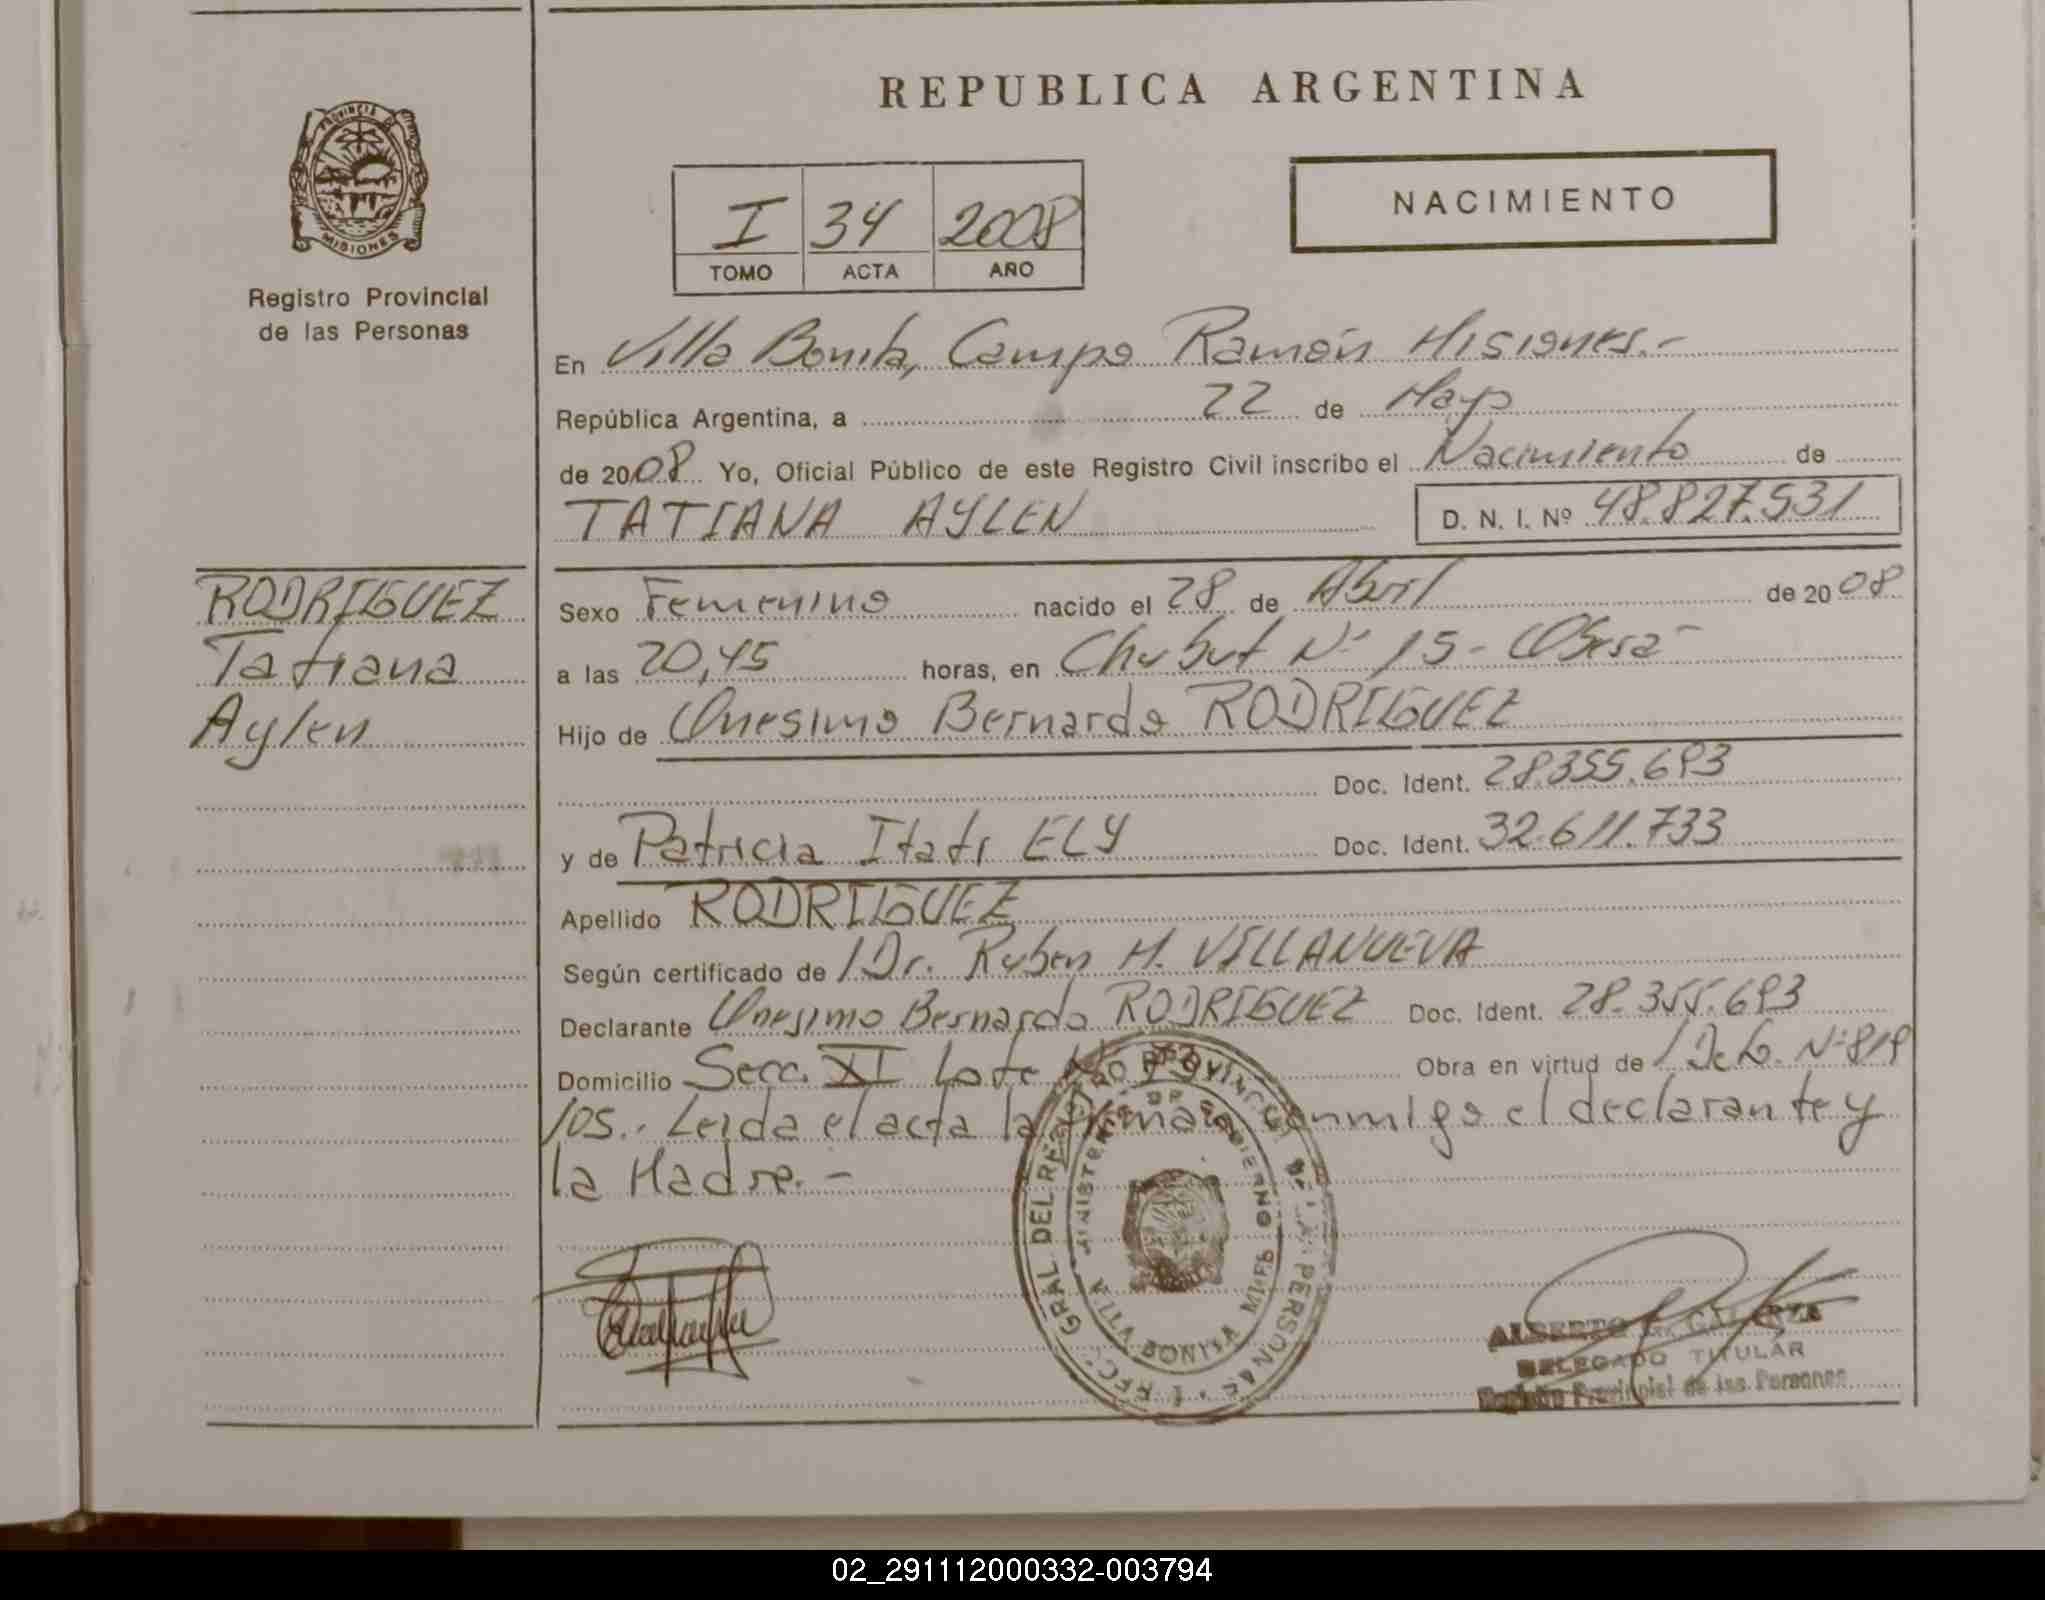 REPUBLICA ARGENTINA
PROVINCIA DE
MISIONES
Registro Provincial
de las Personas
I 34 2008
TOMO ACTA AÑO
NACIMIENTO
En Villa Bonita, Campo Ramón Misiones.-
República Argentina, a 22 de Mayo
de 2008 Yo, Oficial Público de este Registro Civil inscribo el Nacimiento de
TATIANA AYLEN D. N. I. Nº 48.827.531
RODRIGUEZ
Tatiana
Aylen
Sexo Femenino nacido el 28 de Abril de 2008
a las 20,45 horas, en Chubut Nº 15 - Oberá -
Hijo de Onesimo Bernardo RODRIGUEZ
Doc. Ident. 28.355.693
y de Patricia Itati ELY Doc. Ident. 32.611.733
Apellido RODRIGUEZ
Según certificado de / Dr. Ruben H. VILLANUEVA
Declarante Onesimo Bernardo RODRIGUEZ Doc. Ident. 28.355.693
Domicilio Secc. XI Lote Obra en virtud de / Dcto. Nº 819
/05.- Leida el acta la firman conmigo el declarante y
la Madre.-
GRAL DEL REGISTRO PROVINCIAL DE LAS PERSONAS
MINISTERIO DE GOBIERNO
VILLA BONITA
ALBERTO G.
DELEGADO TITULAR
Registro Provincial de las Personas
02_291112000332-003794